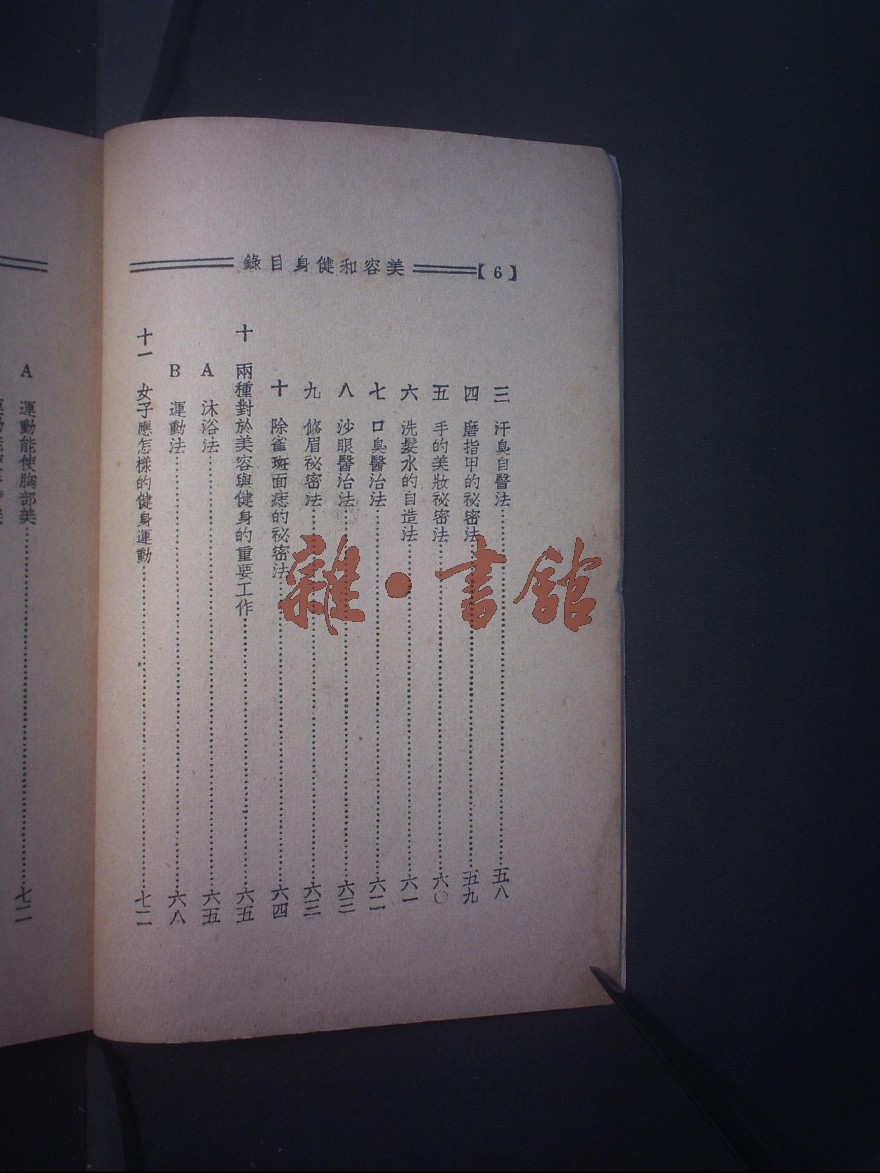 【6】
錄目身健和容美
三 汗臭自醫法……五八
四 磨指甲的祕密法……五九
五 手的美妝祕密法……六〇
六 洗髮水的自造法……六一
七 口臭醫治法……六二
八 沙眼醫治法……六三
九 修眉祕密法……六三
十 除雀斑面痣的祕密法……六四
十 兩種對於美容與健身的重要工作……六五
A 沐浴法……六五
B 運動法……六八
十一 女子應怎樣的健身運動……七二
A 運動能使胸部美……七二
雜·書館